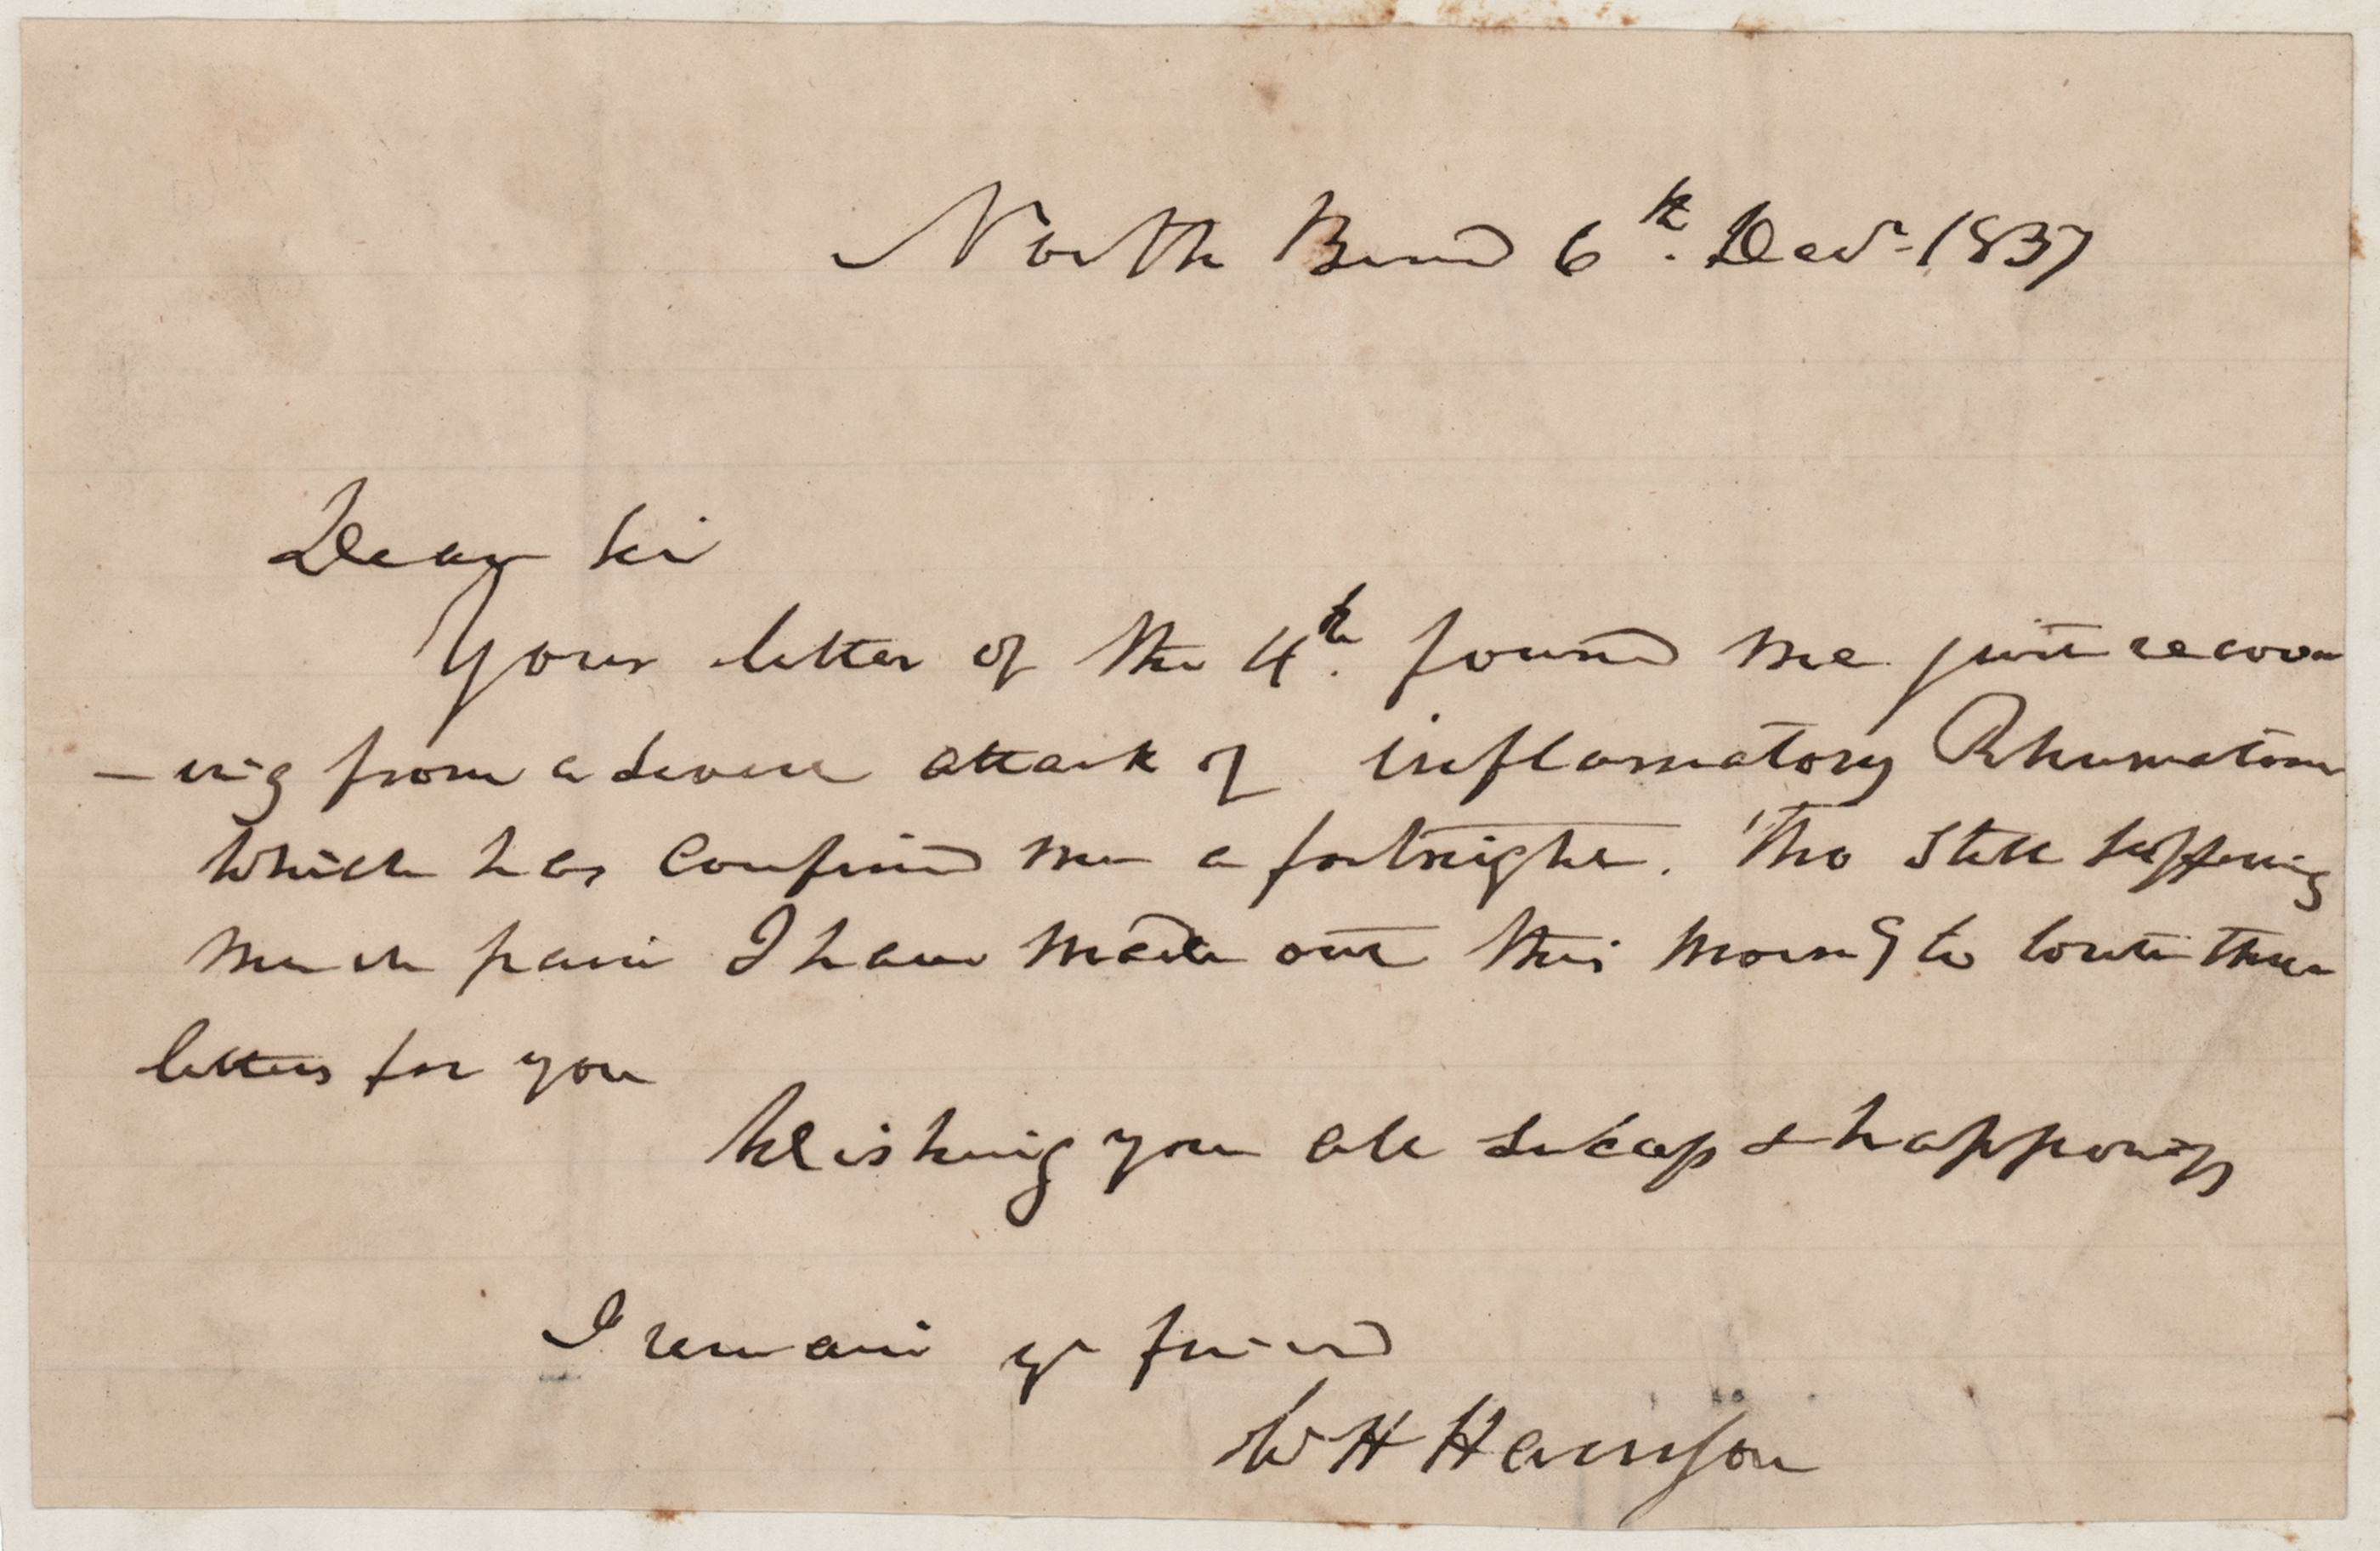 North Bend 6th. Decr. 1837
Dear Sir
Your letter of the 4th. found me just recover
-ing from a severe attack of inflamatory Rhumatism
which has confined me a fortnight. Tho still suffering
much pain I have made out this morng to write three
letters for you
Wishing you all success & happiness
I remain yr friend
W H Harrison